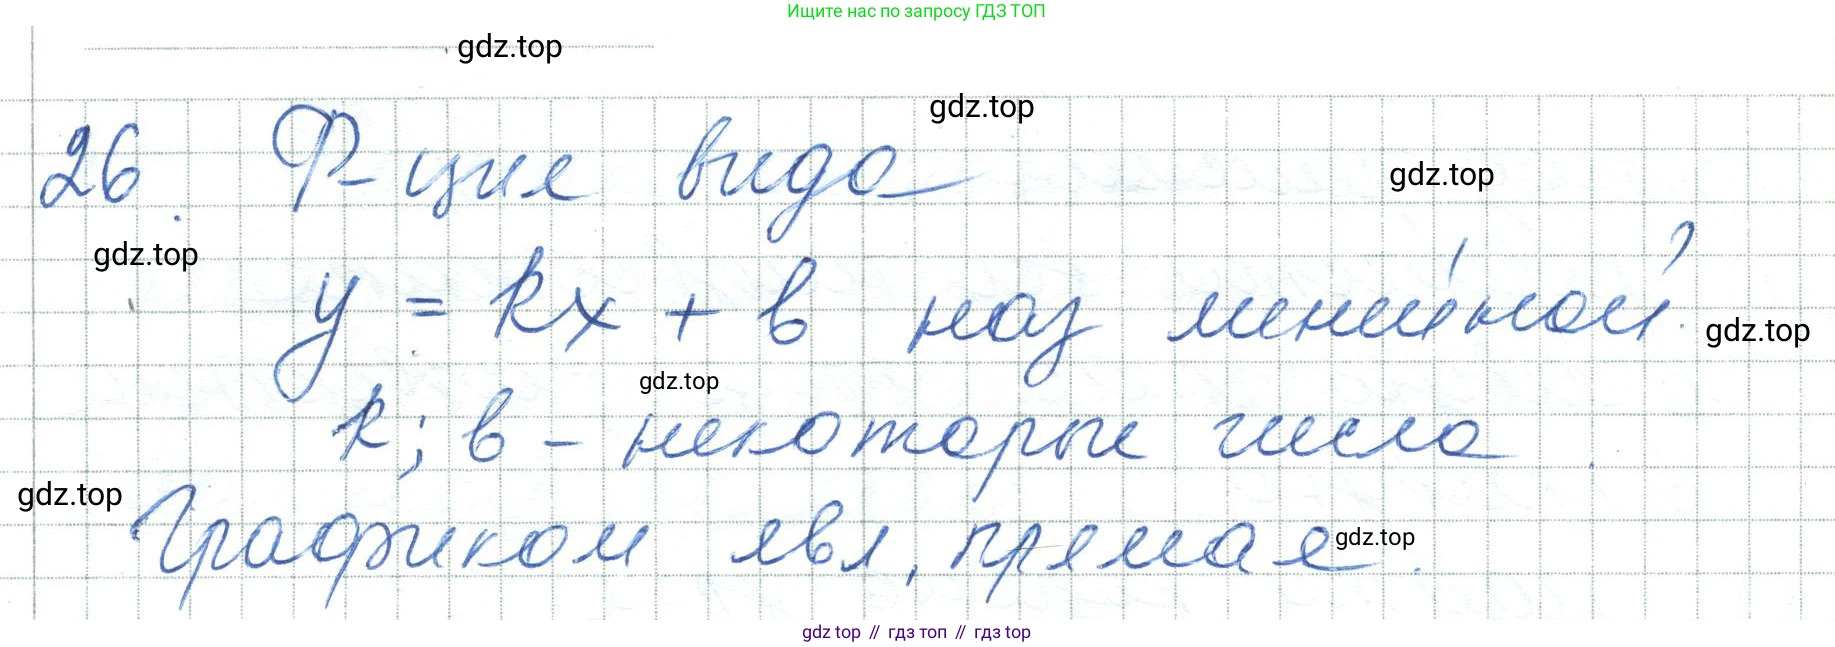 Ищите нас по запросу ГДЗ ТОП
gdz.top
gdz.top
26. Ф-ция вида
gdz.top
gdz.top
y = kx + b наз линейной.
gdz.top
gdz.top
k; b - некоторые числа.
gdz.top
Графиком явл. прямая.
gdz.top
gdz top // гдз топ // gdz top